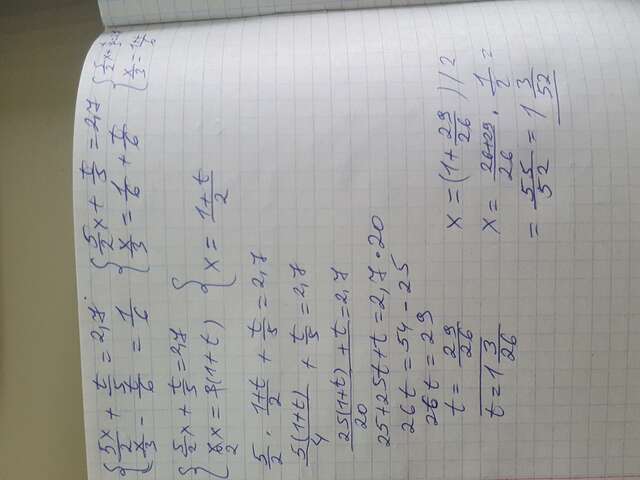 { 5x/2 + t/5 = 2,7
x/3 - t/6 = 1/6
{ 5/2 x + t/5 = 2,7
x/3 = 1/6 + t/6
{ 5/2 x + t/5 = 2,7
x = 3(1+t)
{ x = 1+t/2
5/2 · 1+t/2 + t/5 = 2,7
5(1+t)/4 + t/5 = 2,7
25(1+t) + t/20 = 2,7
25 + 25t + t = 2,7 · 20
26t = 54 - 25
26t = 29
t = 29/26
t = 1 3/26
x = (1 + 29/26) / 2
x = 26+29/26 · 1/2 =
= 55/52 = 1 3/52